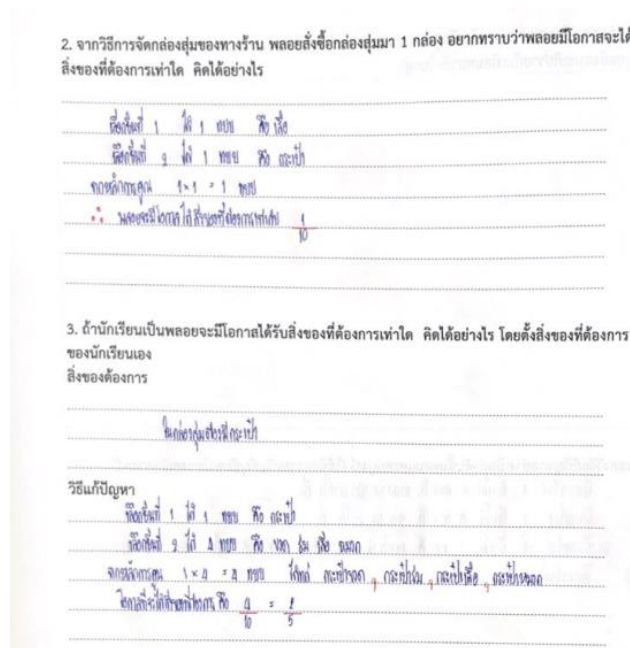 2. จากวิธีการจัดกล่องสุ่มของทางร้าน พลอยสั่งซื้อกล่องสุ่มมา 1 กล่อง อยากทราบว่าพลอยมีโอกาสจะได้
สิ่งของที่ต้องการเท่าใด คิดได้อย่างไร
เลือกชิ้นที่ 1 ได้ 1 แบบ คือ เสื้อ
เลือกชิ้นที่ 2 ได้ 1 แบบ คือ กระเป๋า
จากหลักการคูณ 1×1 = 1 แบบ
∴ พลอยจะมีโอกาสได้สิ่งของที่ต้องการเท่ากับ 1/10
3. ถ้านักเรียนเป็นพลอยจะมีโอกาสได้รับสิ่งของที่ต้องการเท่าใด คิดได้อย่างไร โดยตั้งสิ่งของที่ต้องการ
ของนักเรียนเอง
สิ่งของต้องการ
ในกล่องสุ่มต้องมีกระเป๋า
วิธีแก้ปัญหา
เลือกชิ้นที่ 1 ได้ 1 แบบ คือ กระเป๋า
เลือกชิ้นที่ 2 ได้ 4 แบบ คือ ร่ม เสื้อ หมวก
จากหลักการคูณ 1×4 = 4 แบบ ได้แก่ , กระเป๋าร่ม , กระเป๋าเสื้อ , กระเป๋าหมวก
โอกาสที่จะได้สิ่งของที่ต้องการ คือ 4/10 = 2/5